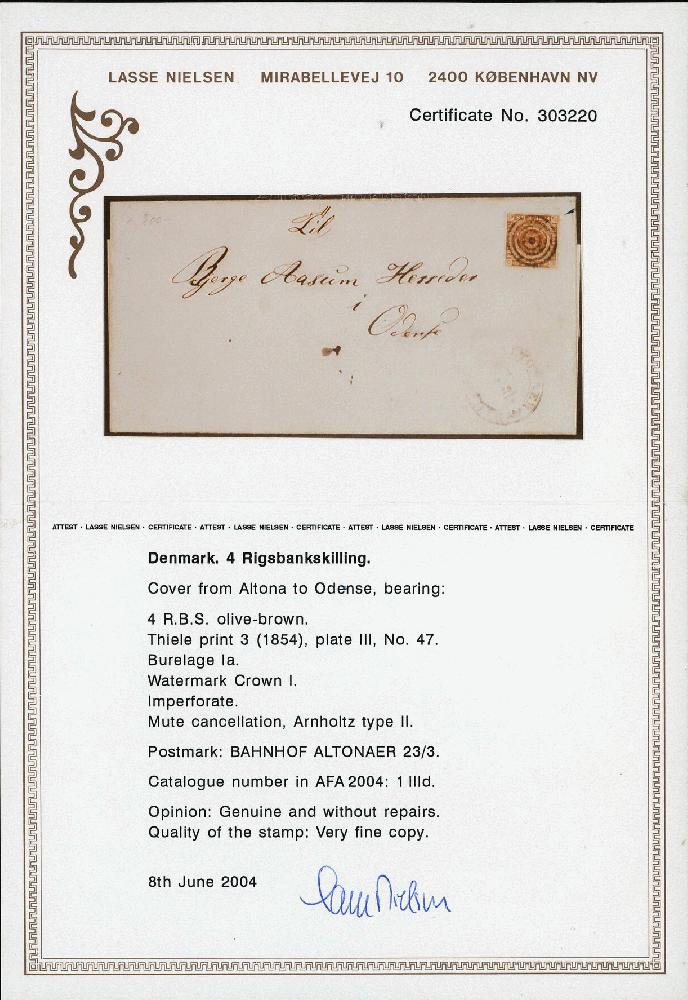 LASSE NIELSEN MIRABELLEVEJ 10 2400 KØBENHAVN NV
Certificate No. 303220
Til
Børge Aasum Herreder
i
Odense
ATTEST · LASSE NIELSEN · CERTIFICATE · ATTEST · LASSE NIELSEN · CERTIFICATE · ATTEST · LASSE NIELSEN · CERTIFICATE · ATTEST · LASSE NIELSEN · CERTIFICATE
Denmark. 4 Rigsbankskilling.
Cover from Altona to Odense, bearing:
4 R.B.S. olive-brown.
Thiele print 3 (1854), plate III, No. 47.
Burelage Ia.
Watermark Crown I.
Imperforate.
Mute cancellation, Arnholtz type II.
Postmark: BAHNHOF ALTONAER 23/3.
Catalogue number in AFA 2004: 1 IIId.
Opinion: Genuine and without repairs.
Quality of the stamp: Very fine copy.
8th June 2004
Lasse Nielsen